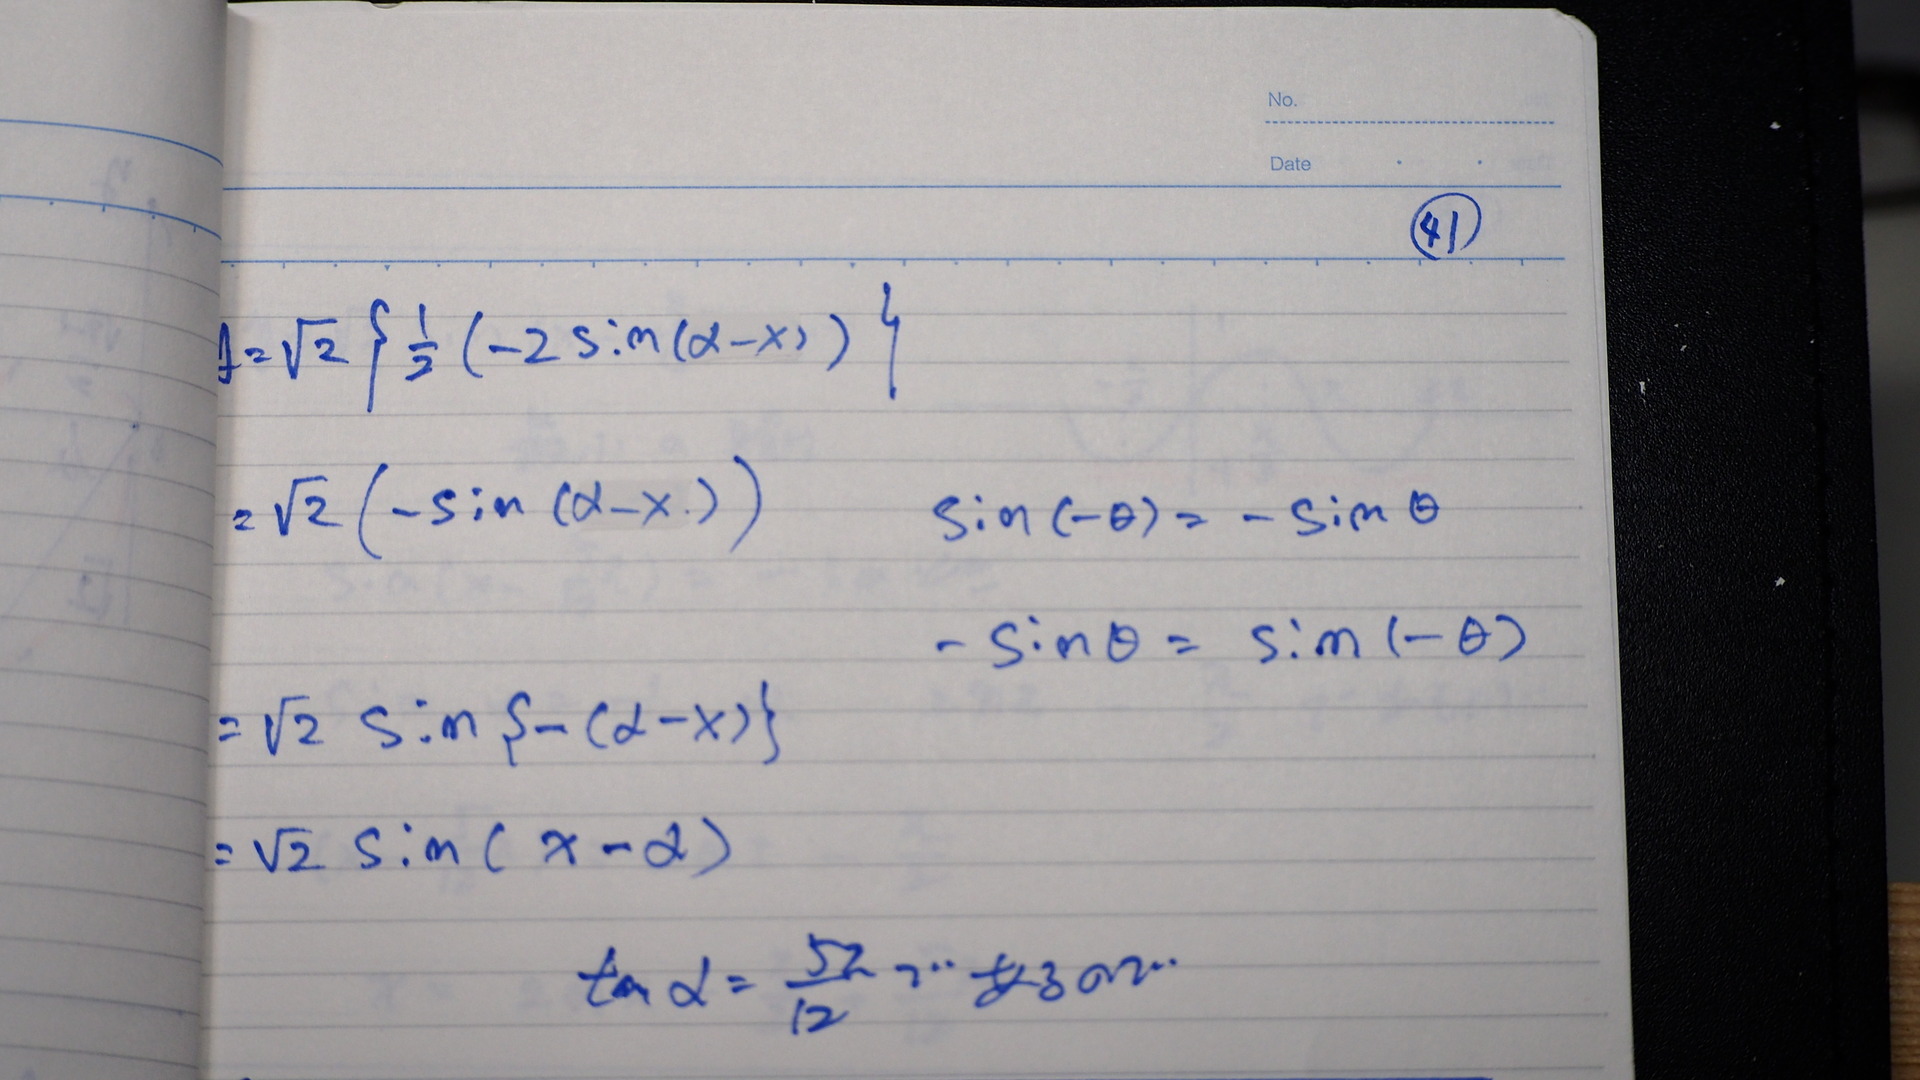 No.
Date
41
A=√2{1/2(-2sin(α-x))}
=√2(-sin(α-x))
sin(-θ)=-sinθ
-sinθ=sin(-θ)
=√2 sin{-(α-x)}
=√2 sin(x-α)
tanα=5π/12